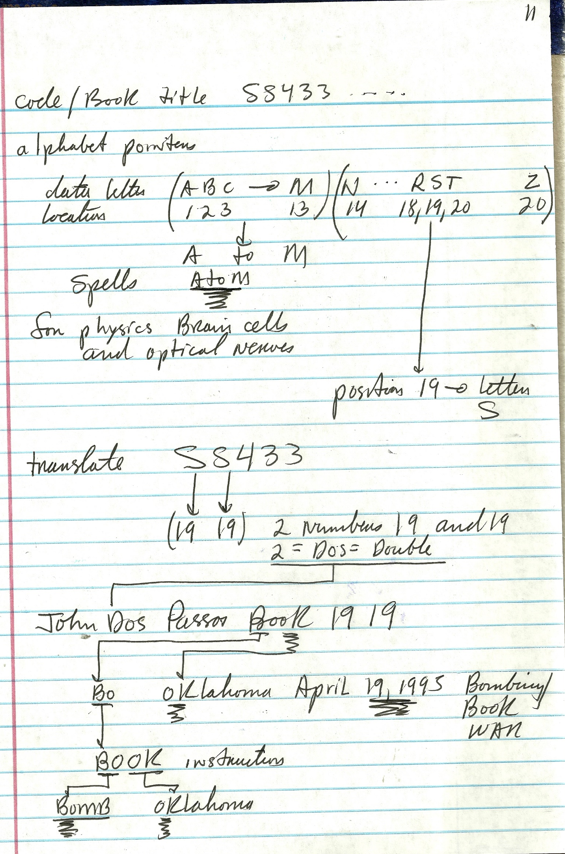 11
code/Book title S8433 .....
alphabet
data letter (A B C → M) (N ... RST Z)
location (1 2 3 13) (14 18,19,20 20)
A to M
Spells AtoM
for physics Brain cells
and optical nerves
position 19 → letter
S
translate S8433
(19 19) 2 Numbers 19 and 19
2 = Dos = Double
John Dos Passos Book 1919
Bo OKlahoma April 19, 1995 Bombing/
Book
WAR
BOOK instruction
BomB OKlahoma